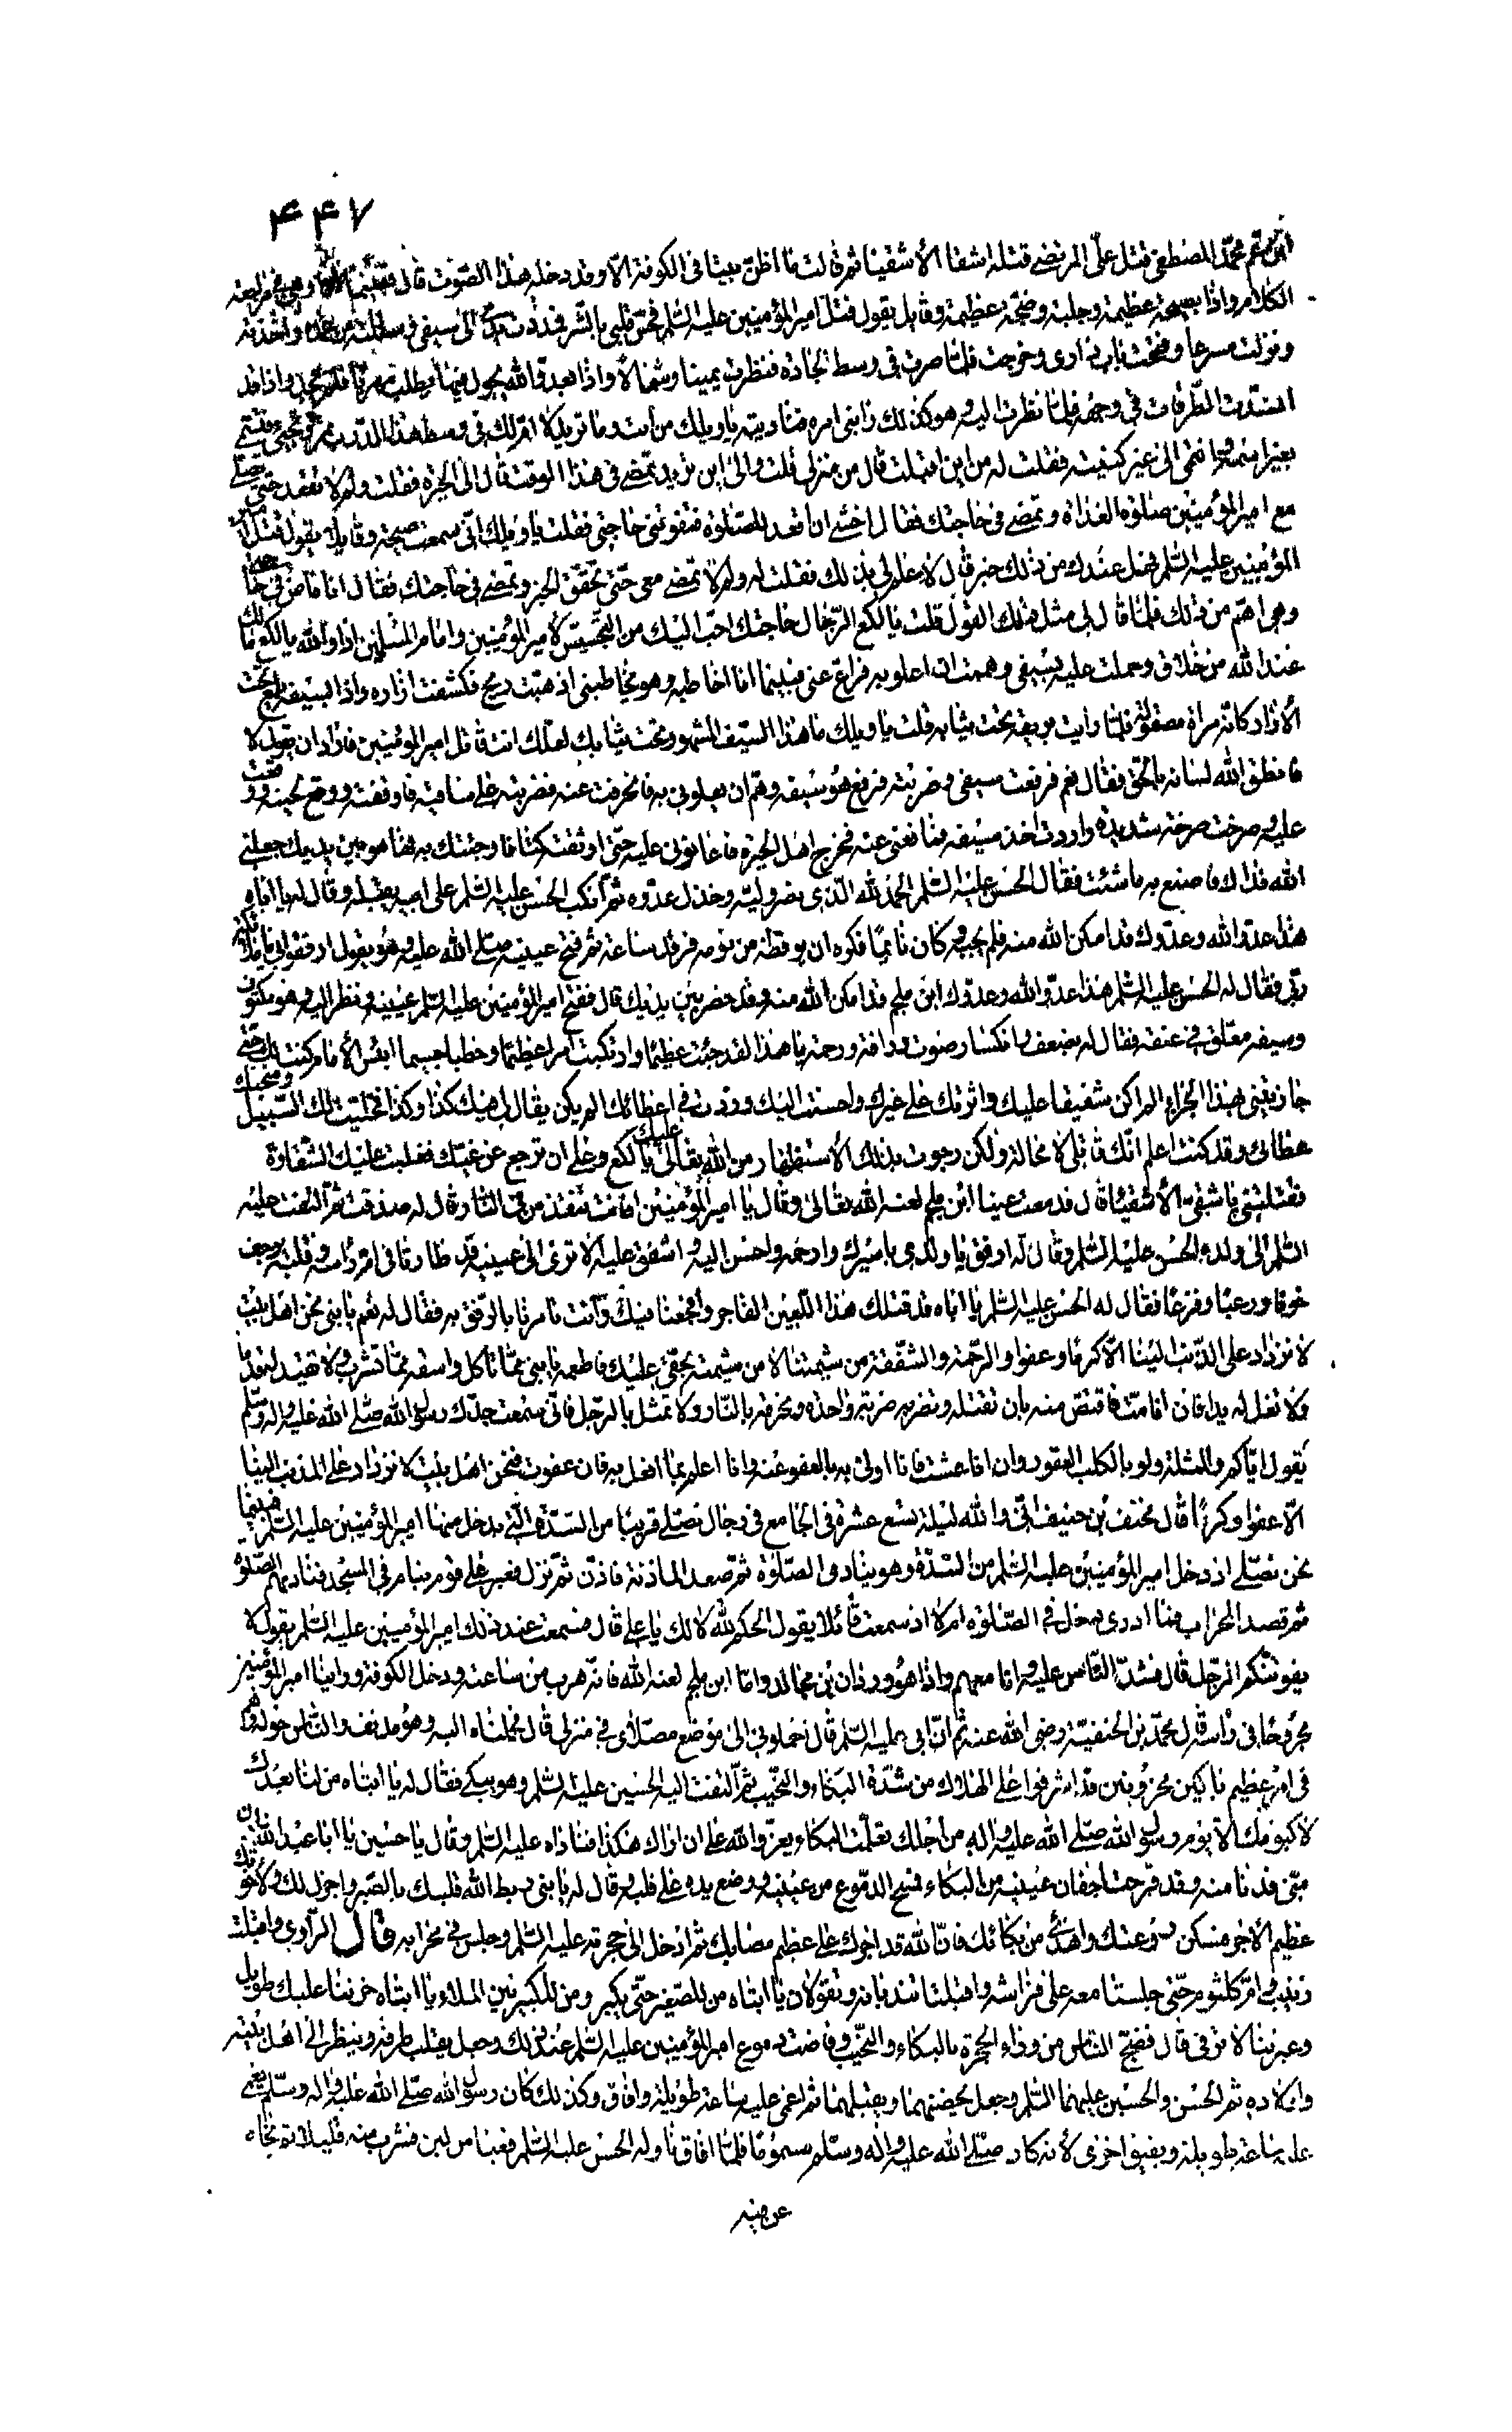 ۴۴۷
ابن عم محمد المصطفى قتل على المرتضى قتله اشقى الأشقيا ثم قالت ما اظن بيتا فى الكوفة الّا وقد دخله هذا الصّوت قال فبينما انا وهى فى مراجعة
الكلام واذا بصيحة عظيمة وجلبة وضجّة عظيمة وقايل يقول قتل امير المؤمنين عليه السّلم فحسّ قلبى بالشّر فمددت يدى الى سيفى واخذته
ونزلت مسرعا وفتحت باب دارى وخرجت فلمّا صرت فى وسط الجادّة فنظرت يمينا وشمالا واذا بعدوّ الله يجول فيها يطلب مهربا فلم يجد واذا قد
انسدّت الطّرقات فى وجهه فلمّا نظرت اليه وهو كذلك رابنى امره فناديته يا ويلك من انت وما تريد لا امّ لك فى وسط هذا الدّرب تمرّ وتجىء فتسمّى
بغير اسمه وانتمى الى غير كنيته فقلت له من اين اقبلت قال من منزلى قلت والى اين تريد تمضى فى هذا الوقت قال الى الحيرة فقلت ولم لا تقعد حتى تصلّى
مع امير المؤمنين صلوة الغداة وتمضى فى حاجتك فقال اخشى ان اقعد للصّلوة فتفوتنى حاجتى فقلت يا ويلك انّى سمعت صيحة وقايلا يقول قتل امير
المؤمنين عليه السّلم فهل عندك من ذلك خبر قال لا علم لى بذلك فقلت له ولم لا تمضى معى حتّى تحقّق الخبر وتمضى فى حاجتك فقال انا ماض فى حاجتى
وهى اهمّ من ذلك فلمّا قال لى مثل ذلك القول قلت يا لكع الرّجال حاجتك احبّ اليك من التجسّس لامير المؤمنين وامام المسلمين اذا والله يا لكع مالك
عند الله من خلاق وحملت عليه بسيفى وهممت ان اعلو به فراغ عنى فبينما انا اخاطبه وهو يخاطبنى اذ هبّت ريح فكشفت ازاره واذا بسيفه يلمع تحت
الازار كانّه مراة مصقولة فلمّا رايت بريقه تحت ثيابه قلت يا ويلك ما هذا السّيف المشهور تحت ثيابك لعلّك انت قاتل امير المؤمنين فاراد ان يقول لا
فانطق الله لسانه بالحقّ فقال نعم فرفعت سيفى وضربته فرفع هو سيفه وهمّ ان يعلونى به فانحرفت عنه فضربته على ساقيه فاوقعته ووقع لحينه ووقعت
عليه وصرخت صرخة شديدة واردت اخذ سيفه فمانعنى عنه فخرج اهل الحيرة فاعانونى عليه حتّى اوثقته كتافا وجئتك به فها هو بين يديك جعلنى
الله فداك فاصنع به ما شئت فقال الحسن عليه السّلم الحمد لله الّذى نصر وليّه وخذل عدوّه ثم انكبّ الحسن عليه السّلم على ابيه يقبّله وقال له يا اباه
هذا عدوّ الله وعدوّك قد امكن الله منه فلم يجبه وكان نائما فكره ان يوقظه من نومه فرقد ساعة ثم فتح عينيه صلّى الله عليه وهو يقول ارفقوا بى يا ملائكة
ربّى فقال له الحسن عليه السّلم هذا عدوّ الله وعدوّك ابن ملجم قد امكن الله منه وقد حضر بين يديك قال ففتح امير المؤمنين عليه السّلم عينيه ونظر اليه وهو مكتوف
وسيفه معلّق فى عنقه فقال له بضعف وانكسار صوت ورافة ورحمة يا هذا لقد جئت عظيما وارتكبت امرا عظيما وخطبا جسيما ابئس الامام كنت لك حتّى
جازيتنى بهذا الجزاء الم اكن شفيقا عليك واثرتك على غيرك واحسنت اليك وزدت فى اعطائك الم يكن يقال لى فيك كذا وكذا فخلّيت لك السّبيل ومنحتك
عطائى وقد كنت اعلم انّك قاتلى لا محالة ولكن رجوت بذلك الاستظهار من الله تعالى عليك يا لكع وعلى ان ترجع عن غيّك فغلبت عليك الشّقاوة
فقتلتنى يا شقىّ الأشقياء قال فدمعت عينا ابن ملجم لعنه الله تعالى وقال يا امير المؤمنين افانت تنقذ من فى النّار وقال له صدقت ثم التفت عليه
السّلم الى ولده الحسن عليه السّلم وقال له ارفق يا ولدى باسيرك وارحمه واحسن اليه واشفق عليه الا ترى الى عينيه قد طارتا فى امّ راسه وقلبه يرجف
خوفا ورعبا وفزعا فقال له الحسن عليه السّلم يا اباه قد قتلك هذا اللّعين الفاجر وافجعنا فيك وانت تامرنا بالرّفق به فقال له نعم يا بنى نحن اهل بيت
لا نزداد على الذّنب الينا الّا كرما وعفوا والرّحمة والشّفقة من شيمتنا لا من شيمته بحقّى عليك فاطعمه يا بنى ممّا تاكل واسقه ممّا تشرب ولا تقيّد له قدما
ولا تغلّ له يدا فان انا متّ فاقتصّ منه بان تقتله وتضربه ضربة واحدة وتحرقه بالنّار ولا تمثل بالرّجل فانّى سمعت جدّك رسول الله صلّى الله عليه واله وسلّم
يقول ايّاكم والمثلة ولو بالكلب العقور وان انا عشت فانا اولى به بالعفو عنه وانا اعلم بما افعل به فان عفوت فنحن اهل بيت لا نزداد على المذنب الينا
الّا عفوا وكرما قال مخنف بن حنيف انّى والله ليلة تسع عشرة فى الجامع فى رجال نصلّى قريبا من السّدّة الّتى يدخل منها امير المؤمنين عليه السّلم فبينما
نحن نصلّى اذ دخل امير المؤمنين عليه السّلم من السّدّة وهو ينادى الصّلوة ثم صعد الماذنة فاذّن ثمّ نزل فعبر على قوم نيام فى المسجد فناداهم الصّلوة
ثم قصد المحراب فما ادرى دخل فى الصّلوة ام لا اذ سمعت قائلا يقول الحكم لله لا لك يا على قال فسمعت عند ذلك امير المؤمنين عليه السّلم يقول لا
يفوتنّكم الرّجل قال فشدّ النّاس عليه وانا معهم واذا هو وردان بن مجالد وامّا ابن ملجم لعنه الله فانّه هرب من ساعته ودخل الكوفة وراينا امير المؤمنين
مجروحا فى راسه قال محمّد بن الحنفيّة رضى الله عنه ثم انّ ابى عليه السّلم قال احملونى الى موضع مصلّاى فى منزلى قال فحملناه اليه وهو مدنف والنّاس حوله وهم
فى امر عظيم باكين محزونين قد اشرفوا على الهلاك من شدّة البكاء والنّحيب ثم التفت اليه الحسين عليه السّلم وهو يبكى فقال له يا ابتاه من لنا بعدك
لا كيومك الّا يوم رسول الله صلّى الله عليه واله من اجلك تعلّمت البكاء يعزّ والله على ان اراك هكذا فناداه عليه السّلم وقال يا حسين يا ابا عبد الله ادن
منّى فدنا منه وقد قرحت اجفان عينيه من البكاء فمسح الدّموع من عينيه ووضع يده على قلبه وقال له يا بنى ربط الله قلبك بالصّبر واجزل لك ولاخوتك
عظيم الاجر فسكّن روعتك واهدأ من بكائك فانّ الله قد اجرك على عظيم مصابك ثم ادخل الى حجرته عليه السّلم وجلس فى محرابه قال الرّاوى واقبلت
زينب وامّ كلثوم حتّى جلستا معه على فراشه واقبلتا تندبانه وتقولان يا ابتاه من للصّغير حتّى يكبر ومن للكبير بين الملاء يا ابتاه حزننا عليك طويل
وعبرتنا لا ترقى قال فضجّ النّاس من وراء الحجرة بالبكاء والنّحيب وفاضت دموع امير المؤمنين عليه السّلم عند ذلك وجعل يقلب طرفه وينظر الى اهل بيته
واولاده ثم الحسن والحسين عليهما السّلم وجعل يحضنهما ويقبّلهما ثم اغمى عليه ساعة طويلة وافاق وكذلك كان رسول الله صلّى الله عليه واله وسلّم يغمى
عليه ساعة طويلة ويفيق اخرى لانه كان صلّى الله عليه واله وسلّم مسموما فلمّا افاق ناوله الحسن عليه السّلم قعبا من لبن فشرب منه قليلا ثم نحّاه
عن فيه